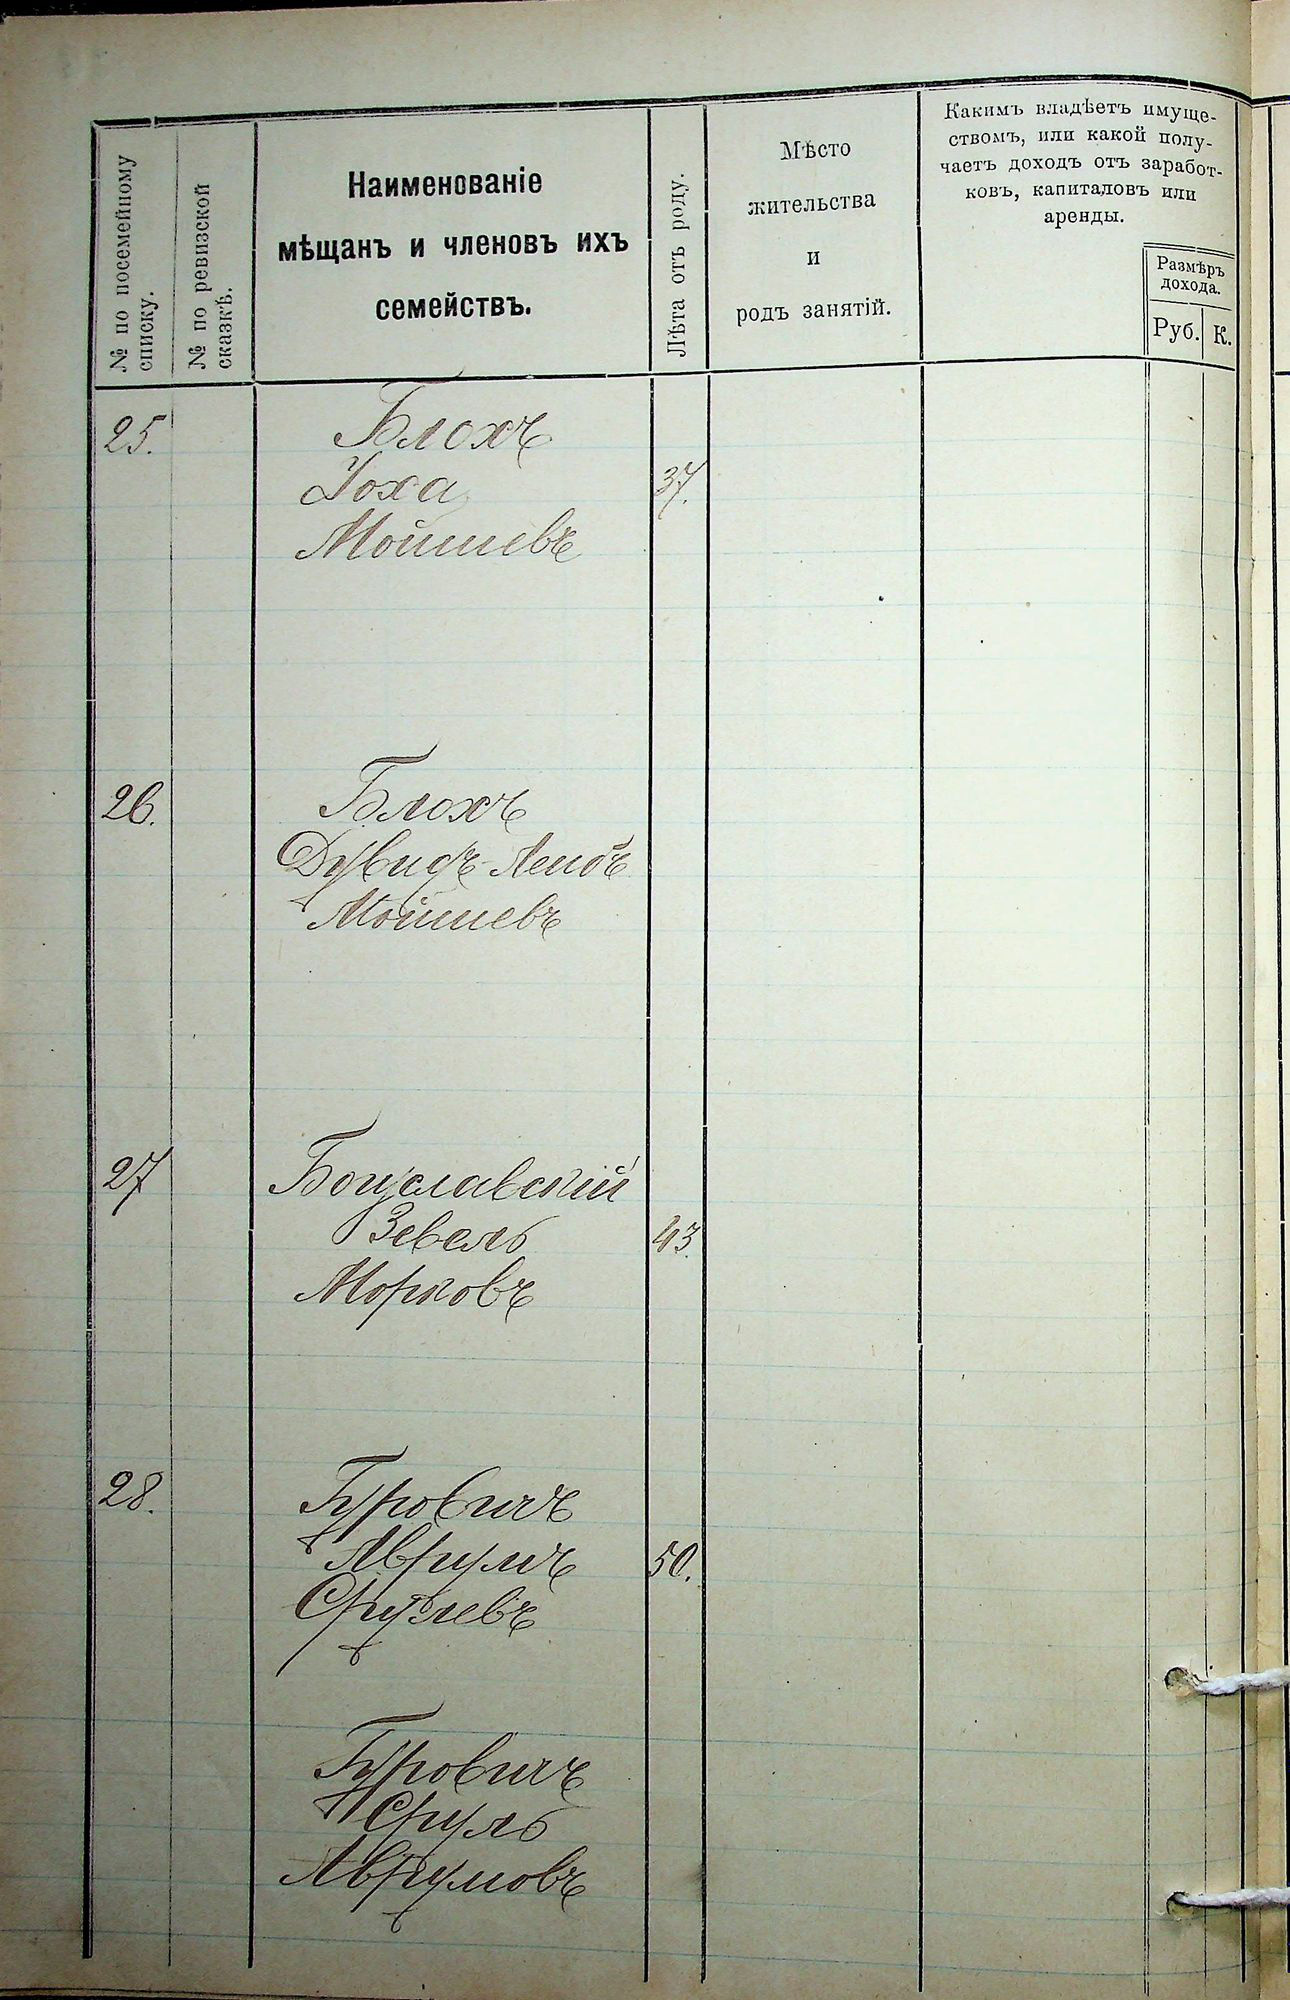 № по посемейному
списку.
№ по ревизской
сказкѣ.
Наименованіе
мѣщанъ и членовъ ихъ
семействъ.
Лѣта отъ роду.
Мѣсто
жительства
и
родъ занятій.
Какимъ владѣетъ имуще-
ствомъ, или какой полу-
чаетъ доходъ отъ заработ-
ковъ, капиталовъ или
аренды.
Размѣръ
дохода.
Руб. К.
25. Блохъ
Іоха 37.
Мойшевъ
26. Блохъ
Дувидъ-Лейбъ
Мойшевъ
27 Богуславскій
Зевель 43.
Морковъ
28. Гуровичъ
Аврумъ 50.
Срулевъ
Гуровичъ
Сруль
Аврумовъ